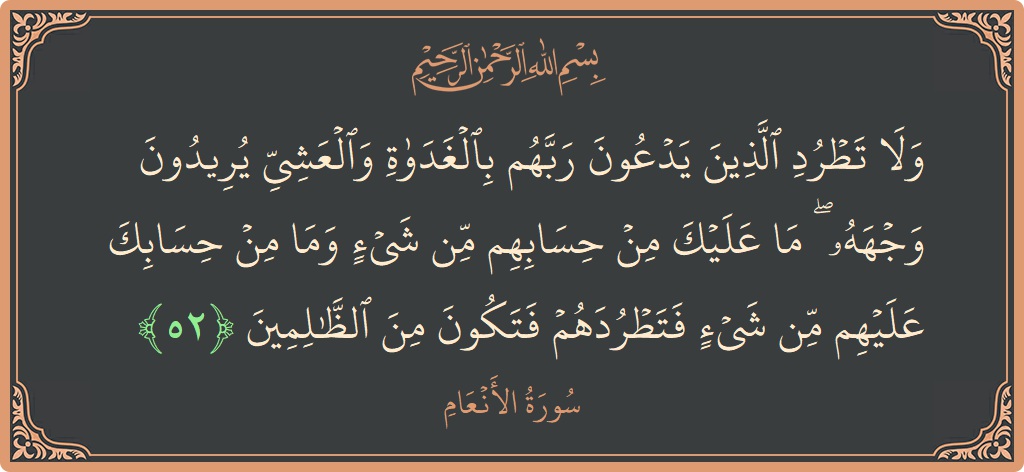 بِسْمِ اللَّهِ الرَّحْمَٰنِ الرَّحِيمِ
وَلَا تَطْرُدِ ٱلَّذِينَ يَدْعُونَ رَبَّهُم بِٱلْغَدَوٰةِ وَٱلْعَشِىِّ يُرِيدُونَ
وَجْهَهُۥ ۖ مَا عَلَيْكَ مِنْ حِسَابِهِم مِّن شَىْءٍ وَمَا مِنْ حِسَابِكَ
عَلَيْهِم مِّن شَىْءٍ فَتَطْرُدَهُمْ فَتَكُونَ مِنَ ٱلظَّٰلِمِينَ ﴿٥٢﴾
سُورَةُ الأَنْعَامِ